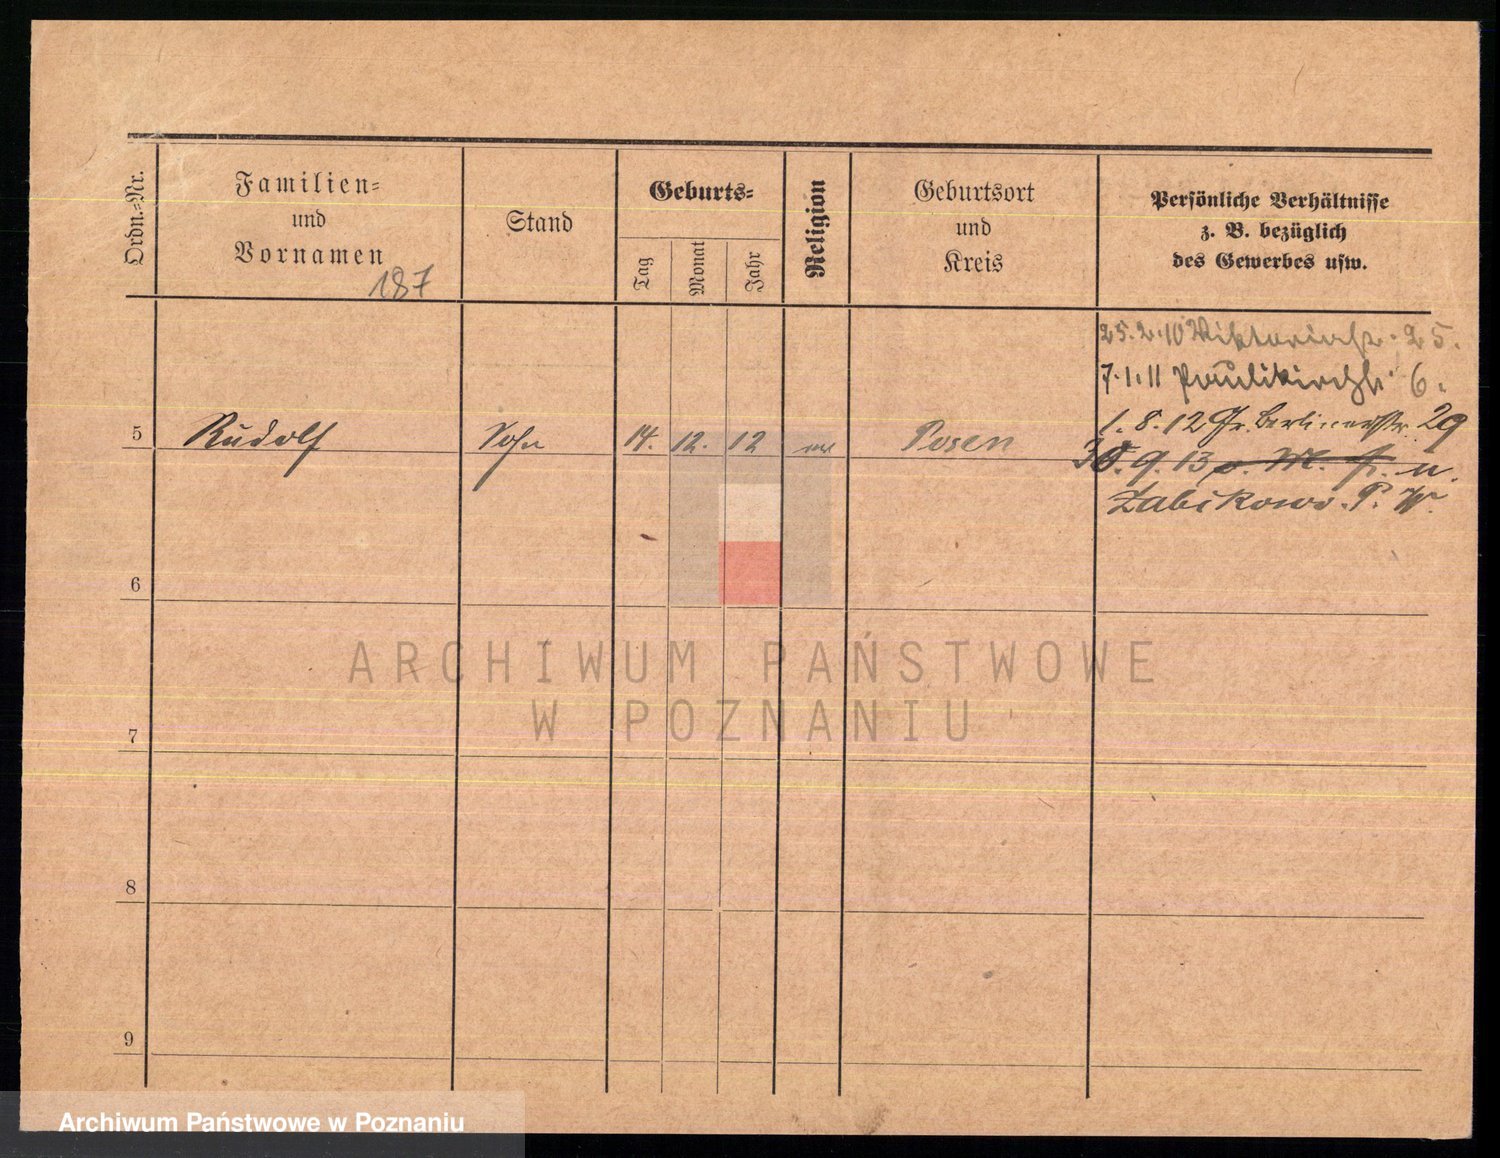 Ordn.-Nr.
Familien-
und
Vornamen
187
Stand
Geburts-
Tag
Monat
Jahr
Religion
Geburtsort
und
Kreis
Persönliche Verhältnisse
z. B. bezüglich
des Gewerbes usw.
25. 2. 10 Viktoriastr. 25.
7. 1. 11 Paulikirchstr. 6.
1. 8. 12 Gr. Berlinerstr. 29
5 Rudolf Sohn 14. 12. 12 ev Posen
30. 9. 13 n.
Zabikowo. P. W.
6
7
8
9
ARCHIWUM PAŃSTWOWE
W POZNANIU
Archiwum Państwowe w Poznaniu